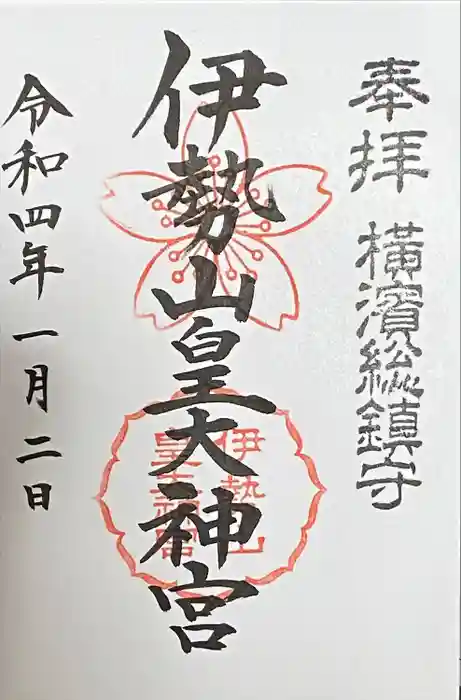 奉拝 橫濱総鎮守
伊勢山皇大神宮
伊勢山
皇大神宮
令和四年一月二日